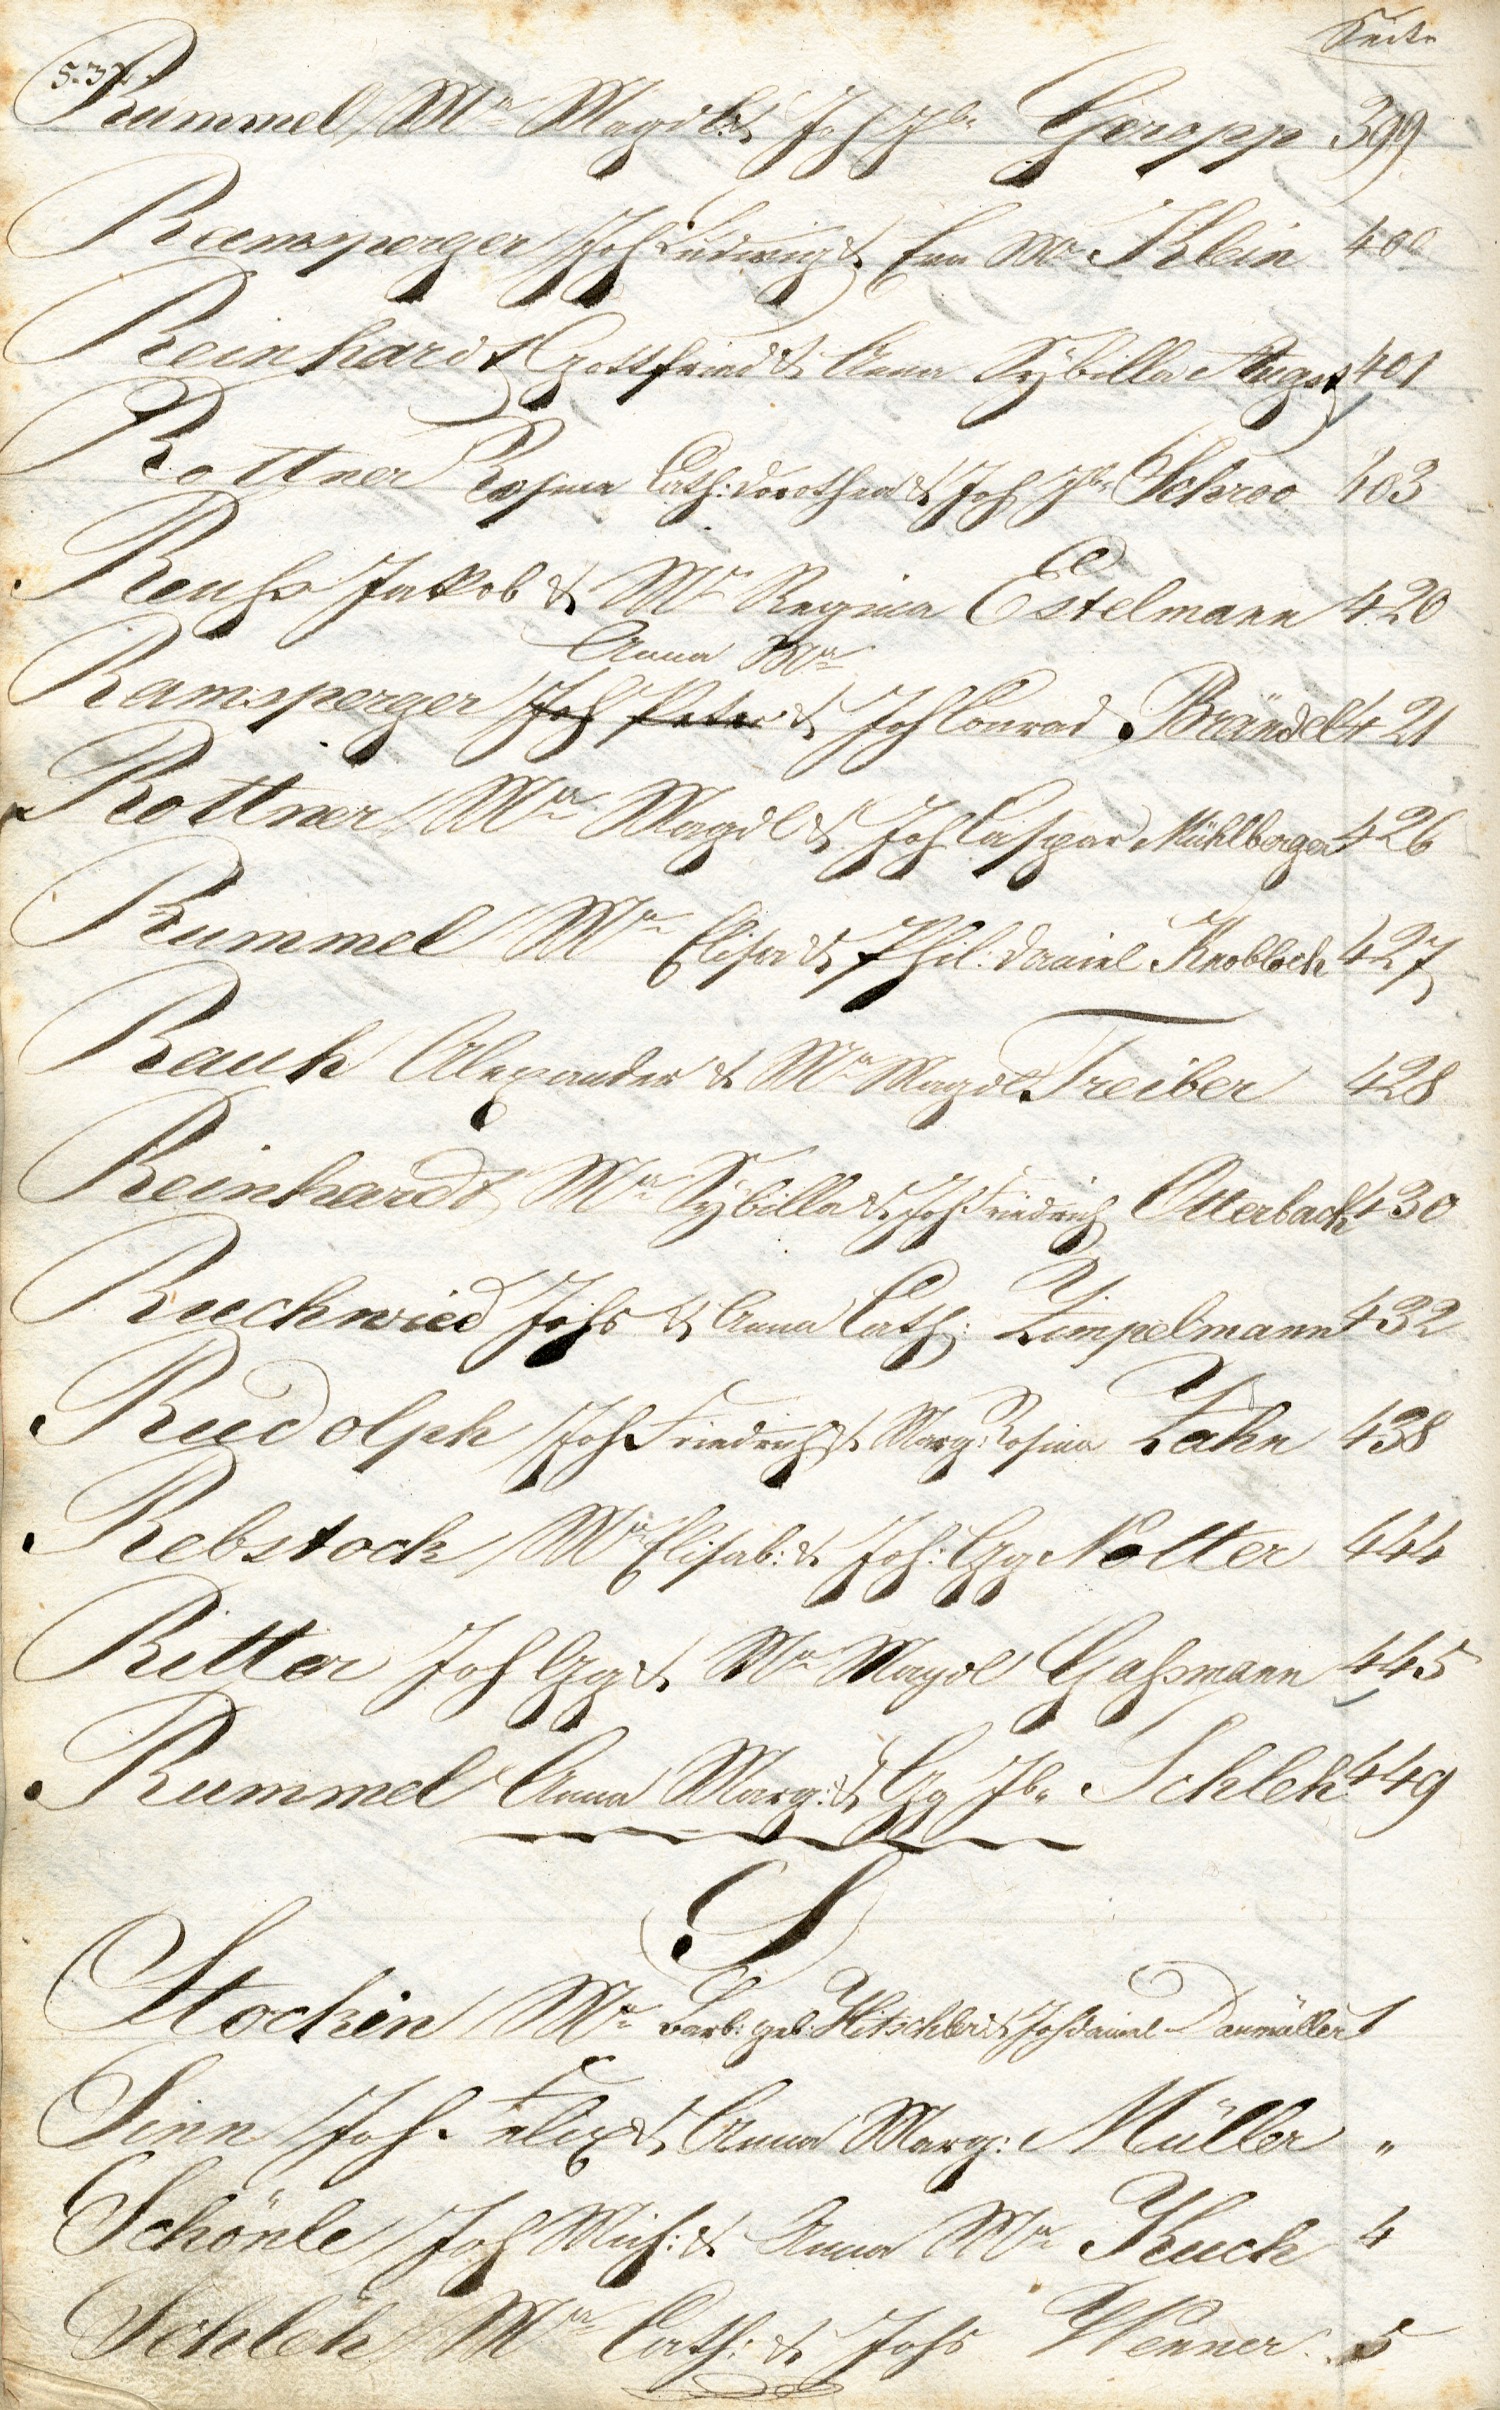 Seite
S. 32.
Rummel Mra Magdl: & Joh Jb. Gropp 399
Ramsperger Joh Ludwig & Eva Mra Klein 400
Reinhardt Gottfried & Anna Sÿbilla August 401
Rottner Rosina Cath: Dorothea & Joh Jb. Schroo 403
Reuhs Jakob & Mra Regina Estelmann 420
Anna Mra
Ramsperger Joh Peter & Joh Conrad Brändel 421
Rottner Mra Magdl & Joh Caspar Mühlberger 426
Rummel Mra Elisa & Phil: Daniel Knobloch 427
Rauh Alexander & Mra Magdl Treiber 428
Reinhardt Mra Sÿbilla & Joh Friedrich Otterbach 430
Ruchwied Johs & Anna Cath: Zimpelmann 432
Rudolph Joh Friedrich & Marg: Rosina Zahn 438
Rebstock Mra Elisab: & Joh: Gg Nolter 444
Ritter Joh Gg & Mra Magdl Gahsmann 445
Rummel Anna Marg: & Gg Jb. Schleh 449
S
Stockin Mra Barb: geb: Hitschler & Joh Daniel Danmüller 1
Sinn Joh. Felix & Anna Marg: Müller "
Schönle Joh Mich: & Anna Mra Kuch 4
Schleh Mra Cath: & Johs Wenner. 5